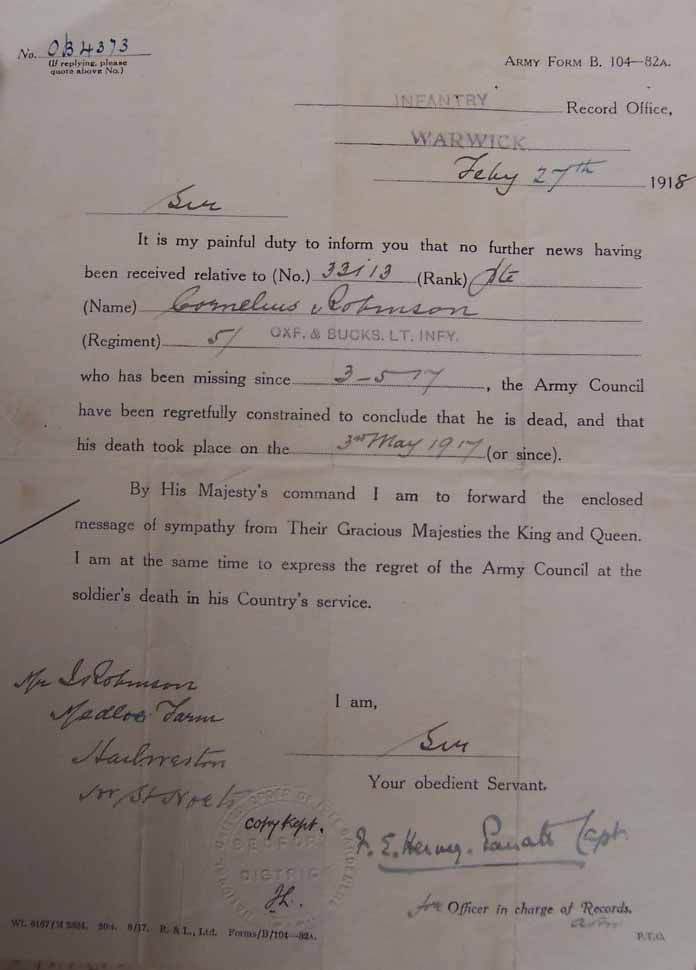 No. OB4373
(If replying, please
quote above No.)
ARMY FORM B. 104—82A.
INFANTRY Record Office,
WARWICK
Feby 27th 1918
Sir
It is my painful duty to inform you that no further news having
been received relative to (No.) 33113 (Rank) Pte
(Name) Cornelius Robinson
(Regiment) 5/ OXF. & BUCKS. LT. INFY.
who has been missing since 3-5-17, the Army Council
have been regretfully constrained to conclude that he is dead, and that
his death took place on the 3rd May 1917 (or since).
By His Majesty's command I am to forward the enclosed
message of sympathy from Their Gracious Majesties the King and Queen.
I am at the same time to express the regret of the Army Council at the
soldier's death in his Country's service.
Mr Robinson
Medloe Farm
Hailweston
Nr St Neots
I am,
Sir
Your obedient Servant,
copy kept.
BEDFORD
DISTRICT
Capt
for Officer in charge of Records.
R. & L., Ltd. Forms/B/104—82A.
P.T.O.